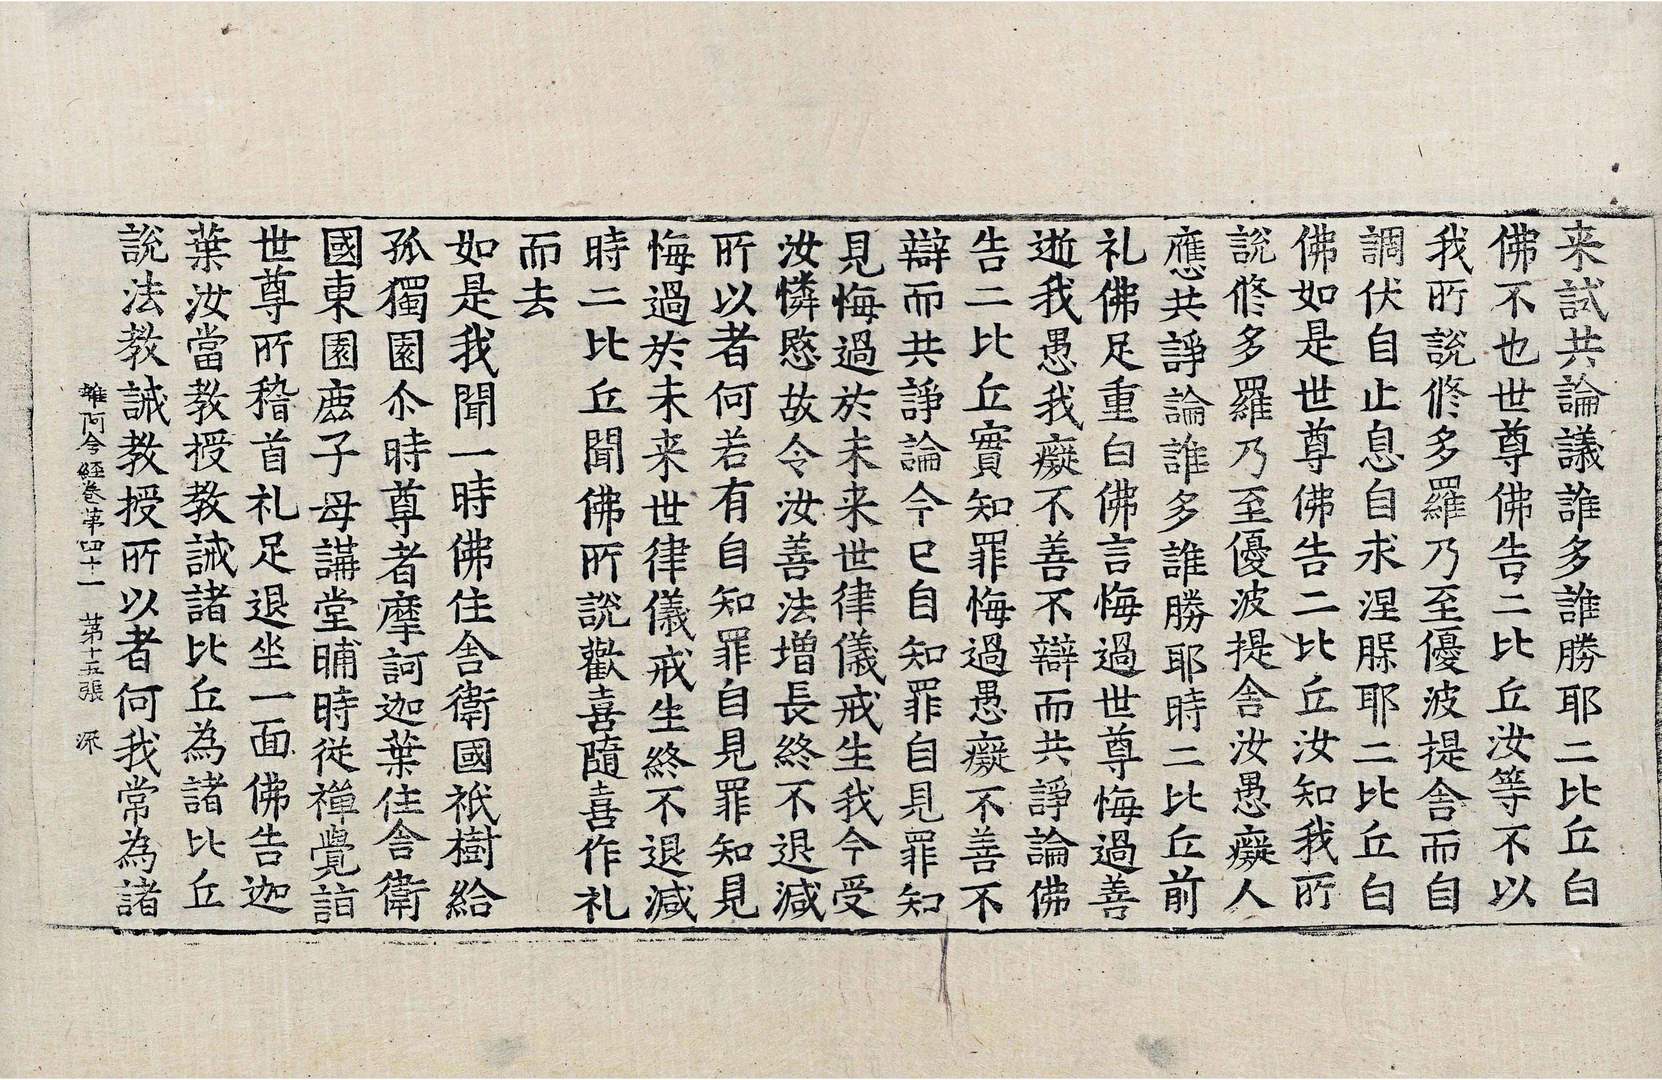 来試共論議誰多誰勝耶二比丘白
佛不也世尊佛告二比丘汝等不以
我所說修多羅乃至優波提舍而自
調伏自止息自求涅槃耶二比丘白
佛如是世尊佛告二比丘汝知我所
說修多羅乃至優波提舍汝愚癡人
應共諍論誰多誰勝耶時二比丘前
礼佛足重白佛言悔過世尊悔過善
逝我愚我癡不善不辯而共諍論佛
告二比丘實知罪悔過愚癡不善不
辯而共諍論今已自知罪自見罪知
見悔過於未来世律儀戒生我今受
汝憐愍故令汝善法增長終不退減
所以者何若有自知罪自見罪知見
悔過於未来世律儀戒生終不退減
時二比丘聞佛所說歡喜隨喜作礼
而去
如是我聞一時佛住舍衛國祇樹給
孤獨園尒時尊者摩訶迦葉住舍衛
國東園鹿子母講堂晡時從禪覺詣
世尊所稽首礼足退坐一面佛告迦
葉汝當教授教誡諸比丘為諸比丘
說法教誡教授所以者何我常為諸
雜阿含經卷第四十一 第十五張 深